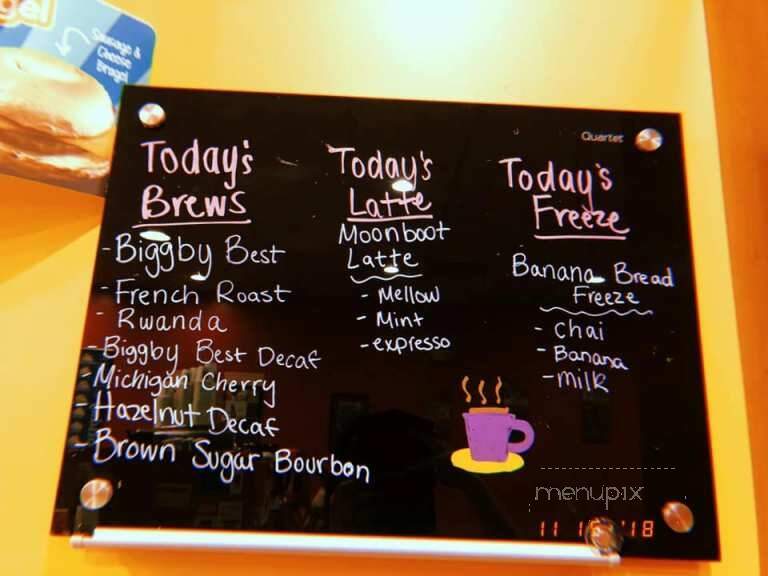 gel
Sausage &
Cheese
Bragel
Quartet
Today's
Brews
- Biggby Best
- French Roast
- Rwanda
- Biggby Best Decaf
- Michigan Cherry
- Hazelnut Decaf
- Brown Sugar Bourbon
Today's
Latte
Moonboot
Latte
- Mellow
- Mint
- expresso
Today's
Freeze
Banana Bread
Freeze
- Chai
- Banana
- milk
menupix
11 '18